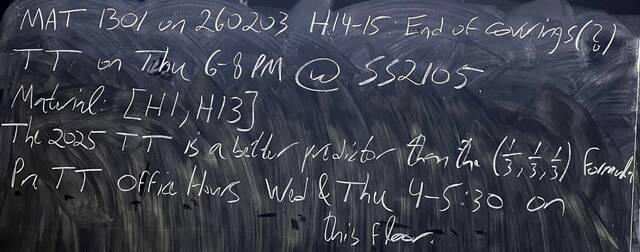 MAT 1301 on 260203 H14-15: End of coverings(?)
TT on Thu 6-8 PM @ SS2105.
Material: [H1, H13]
The 2025 TT is a better predictor than the (1/3, 1/3, 1/3) formula
Pre TT Office Hours Wed & Thu 4-5:30 on
this floor.